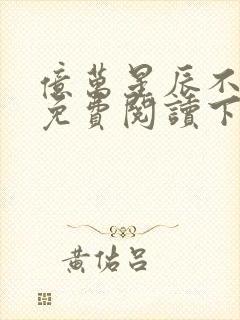 億萬星辰不
免費閱讀下
黃佑呂